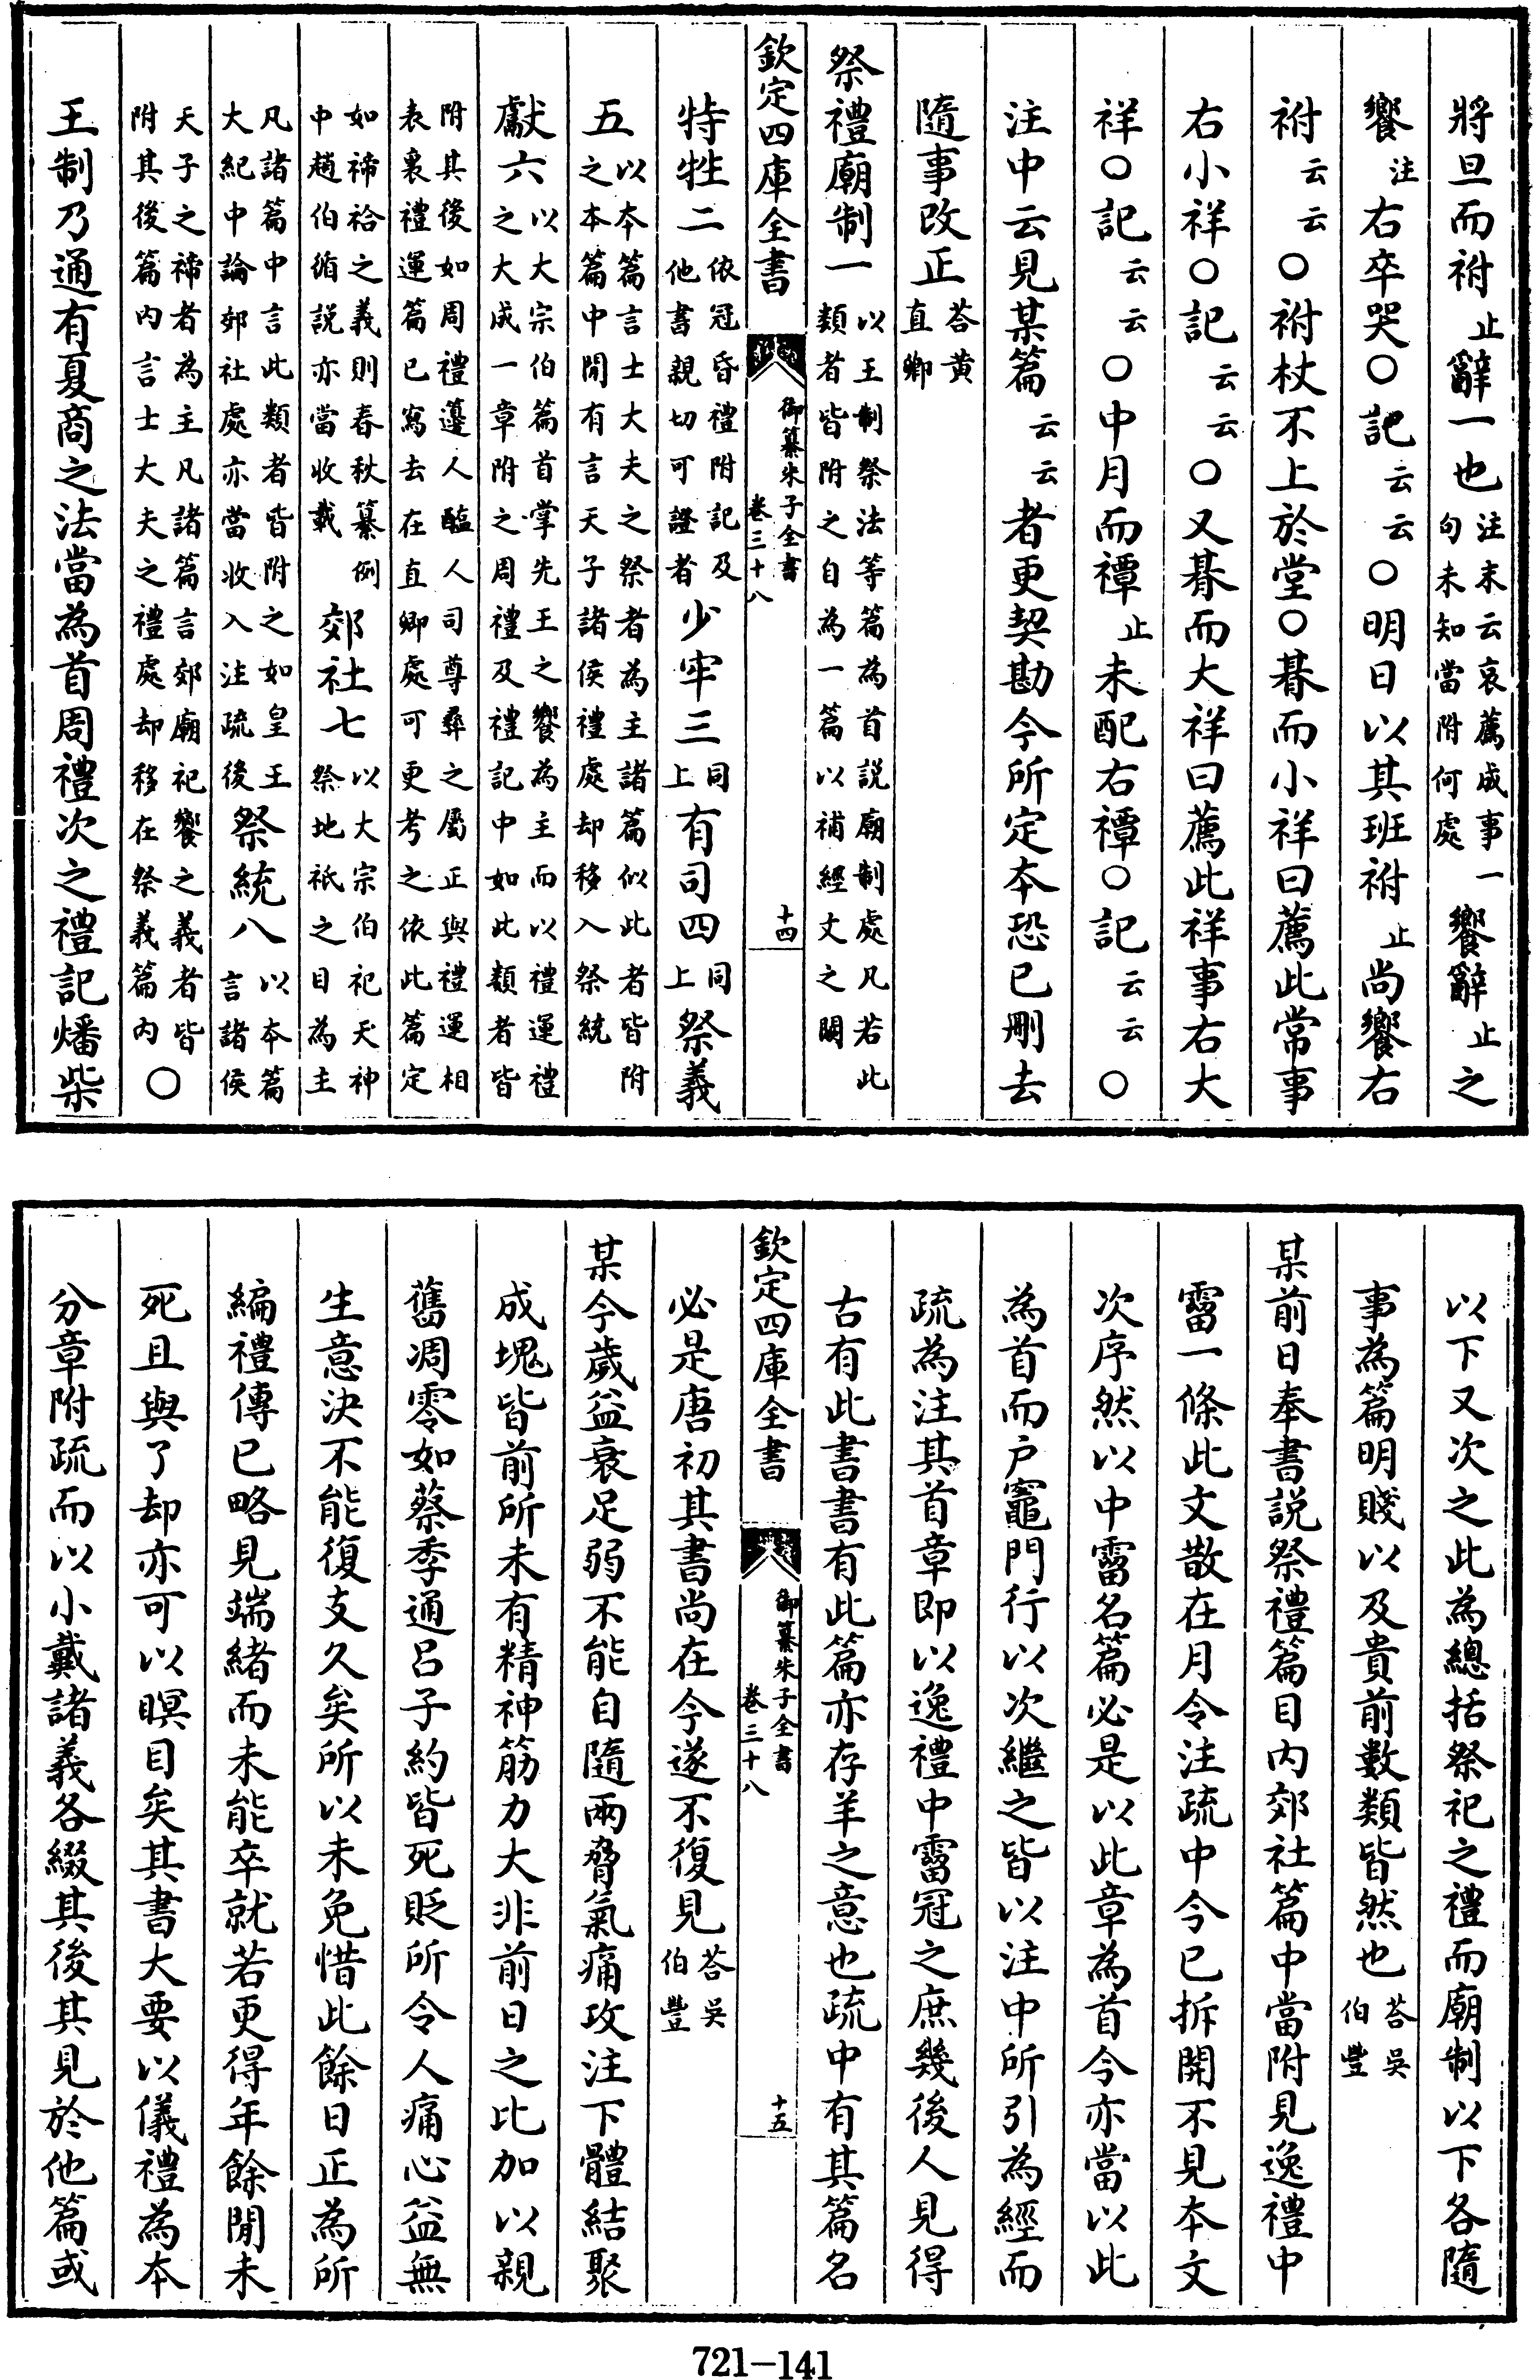 將旦而祔止辭一也注末云哀薦成事一句未知當附何處饗辭止之
饗注右卒哭〇記云云〇明日以其班祔止尚饗右
祔云云〇祔杖不上於堂〇朞而小祥曰薦此常事
右小祥〇記云云〇又朞而大祥曰薦此祥事右大
祥〇記云云〇中月而禫止未配右禫〇記云云〇
注中云見某篇云云者更契勘今所定本恐已刪去
隨事改正荅黃直卿
祭禮廟制一以王制祭法等篇為首説廟制處凡若此類者皆附之自為一篇以補經文之闕
欽定四庫全書 御纂朱子全書 卷三十八 十四
特牲二依冠昏禮附記及他書親切可證者少牢三同上有司四同上祭義
五以本篇言士大夫之祭者為主諸篇似此者皆附之本篇中間有言天子諸侯禮處却移入祭統
獻六以大宗伯篇首掌先王之饗為主而以禮運禮之大成一章附之周禮及禮記中如此類者皆
附其後如周禮籩人醢人司尊彝之屬正與禮運相表裏禮運篇已寫去在直卿處可更考之依此篇定
如禘祫之義則春秋纂例中趙伯循説亦當收載郊社七以大宗伯祀天神祭地祇之目為主
凡諸篇中言此類者皆附之如皇王大紀中論郊社處亦當收入注疏後祭統八以本篇言諸侯
天子之禘者為主凡諸篇言郊廟祀饗之義者皆附其後篇內言士大夫之禮處却移在祭義篇內〇
王制乃通有夏商之法當為首周禮次之禮記燔柴
以下又次之此為總括祭祀之禮而廟制以下各隨
事為篇明賤以及貴前數類皆然也荅吳伯豐
某前日奉書説祭禮篇目內郊社篇中當附見逸禮中
霤一條此文散在月令注疏中今已拆開不見本文
次序然以中霤名篇必是以此章為首今亦當以此
為首而戶竈門行以次繼之皆以注中所引為經而
疏為注其首章即以逸禮中霤冠之庶幾後人見得
古有此書書有此篇亦存羊之意也疏中有其篇名
欽定四庫全書 御纂朱子全書 卷三十八 十五
必是唐初其書尚在今遂不復見荅吳伯豐
某今歲益衰足弱不能自隨兩脅氣痛攻注下體結聚
成塊皆前所未有精神筋力大非前日之比加以親
舊凋零如蔡季通呂子約皆死貶所令人痛心益無
生意決不能復支久矣所以未免惜此餘日正為所
編禮傳已略見端緒而未能卒就若更得年餘間未
死且與了却亦可以瞑目矣其書大要以儀禮為本
分章附疏而以小戴諸義各綴其後其見於他篇或
721-141